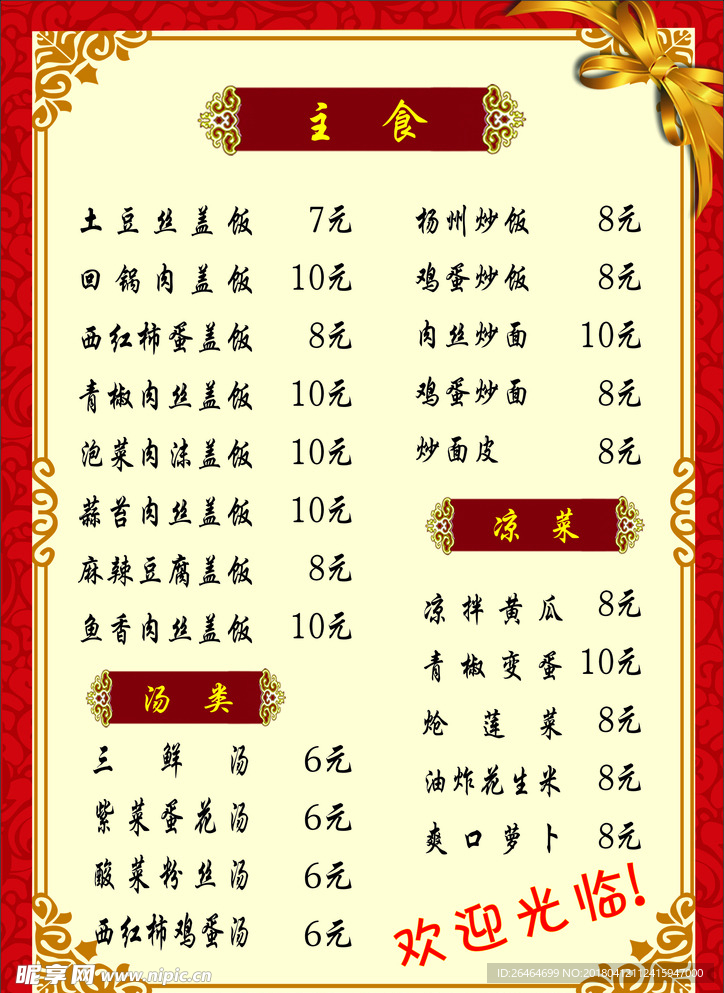 主食
土豆丝盖饭 7元
回锅肉盖饭 10元
西红柿蛋盖饭 8元
青椒肉丝盖饭 10元
泡菜肉沫盖饭 10元
蒜苔肉丝盖饭 10元
麻辣豆腐盖饭 8元
鱼香肉丝盖饭 10元
杨州炒饭 8元
鸡蛋炒饭 8元
肉丝炒面 10元
鸡蛋炒面 8元
炒面皮 8元
汤类
三鲜汤 6元
紫菜蛋花汤 6元
酸菜粉丝汤 6元
西红柿鸡蛋汤 6元
凉菜
凉拌黄瓜 8元
青椒变蛋 10元
炝莲菜 8元
油炸花生米 8元
爽口萝卜 8元
欢迎光临!
昵享网 www.nipic.cn
ID:26464699 NO:20180412112415947000